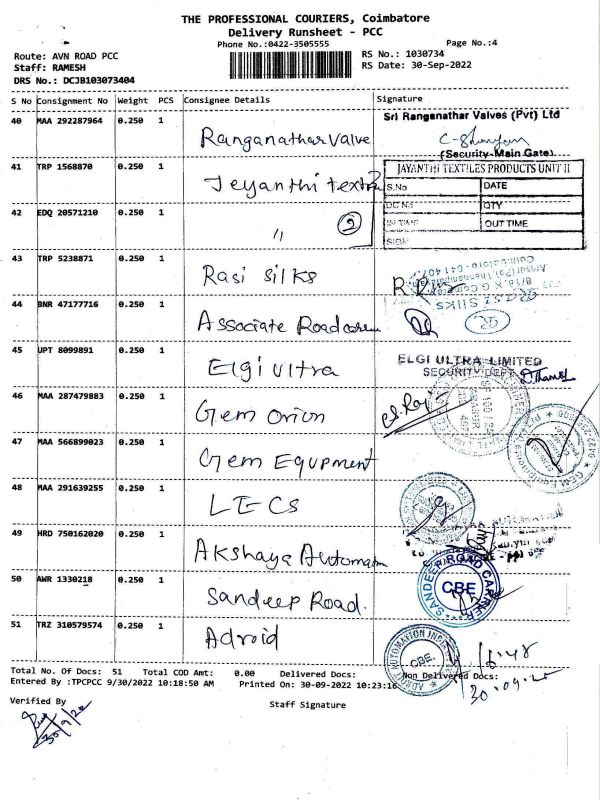 THE PROFESSIONAL COURIERS, Coimbatore
Delivery Runsheet - PCC
Phone No.:0422-3505555
Page No.:4
Route: AVN ROAD PCC
RS No.: 1030734
Staff: RAMESH
RS Date: 30-Sep-2022
DRS No.: DCJB103073404
S No Consignment No Weight PCS Consignee Details Signature
40 MAA 292287964 0.250 1 Ranganathar Valve
Sri Ranganathar Valves (Pvt) Ltd
(Security-Main Gate)
41 TRP 1568870 0.250 1 Jeyanthi
JAYANTHI TEXTILES PRODUCTS UNIT II
S.No DATE
DC No QTY
IN TIME OUT TIME
SIGN
42 EDQ 20571210 0.250 1 " 2
43 TRP 5238871 0.250 1 Rasi Silks
RASI SILKS
44 BNR 47177716 0.250 1 Associate
45 UPT 8099891 0.250 1 Elgi Ultra
ELGI ULTRA LIMITED
SECURITY DEPT
46 MAA 287479883 0.250 1 Gem Orion
47 MAA 566899023 0.250 1 Gem Equpment
48 MAA 291639255 0.250 1 LECS
49 HRD 750162020 0.250 1 Akshaya
50 AWR 1330218 0.250 1 Sandeep Road.
SANDEEP ROAD CARRIER
CBE
51 TRZ 310579574 0.250 1 Adroid
AUTOMATION
CBE.
Total No. Of Docs: 51 Total COD Amt: 0.00 Delivered Docs: Non Delivered Docs:
Entered By :TPCPCC 9/30/2022 10:18:50 AM Printed On: 30-09-2022 10:23:16
Verified By
Staff Signature